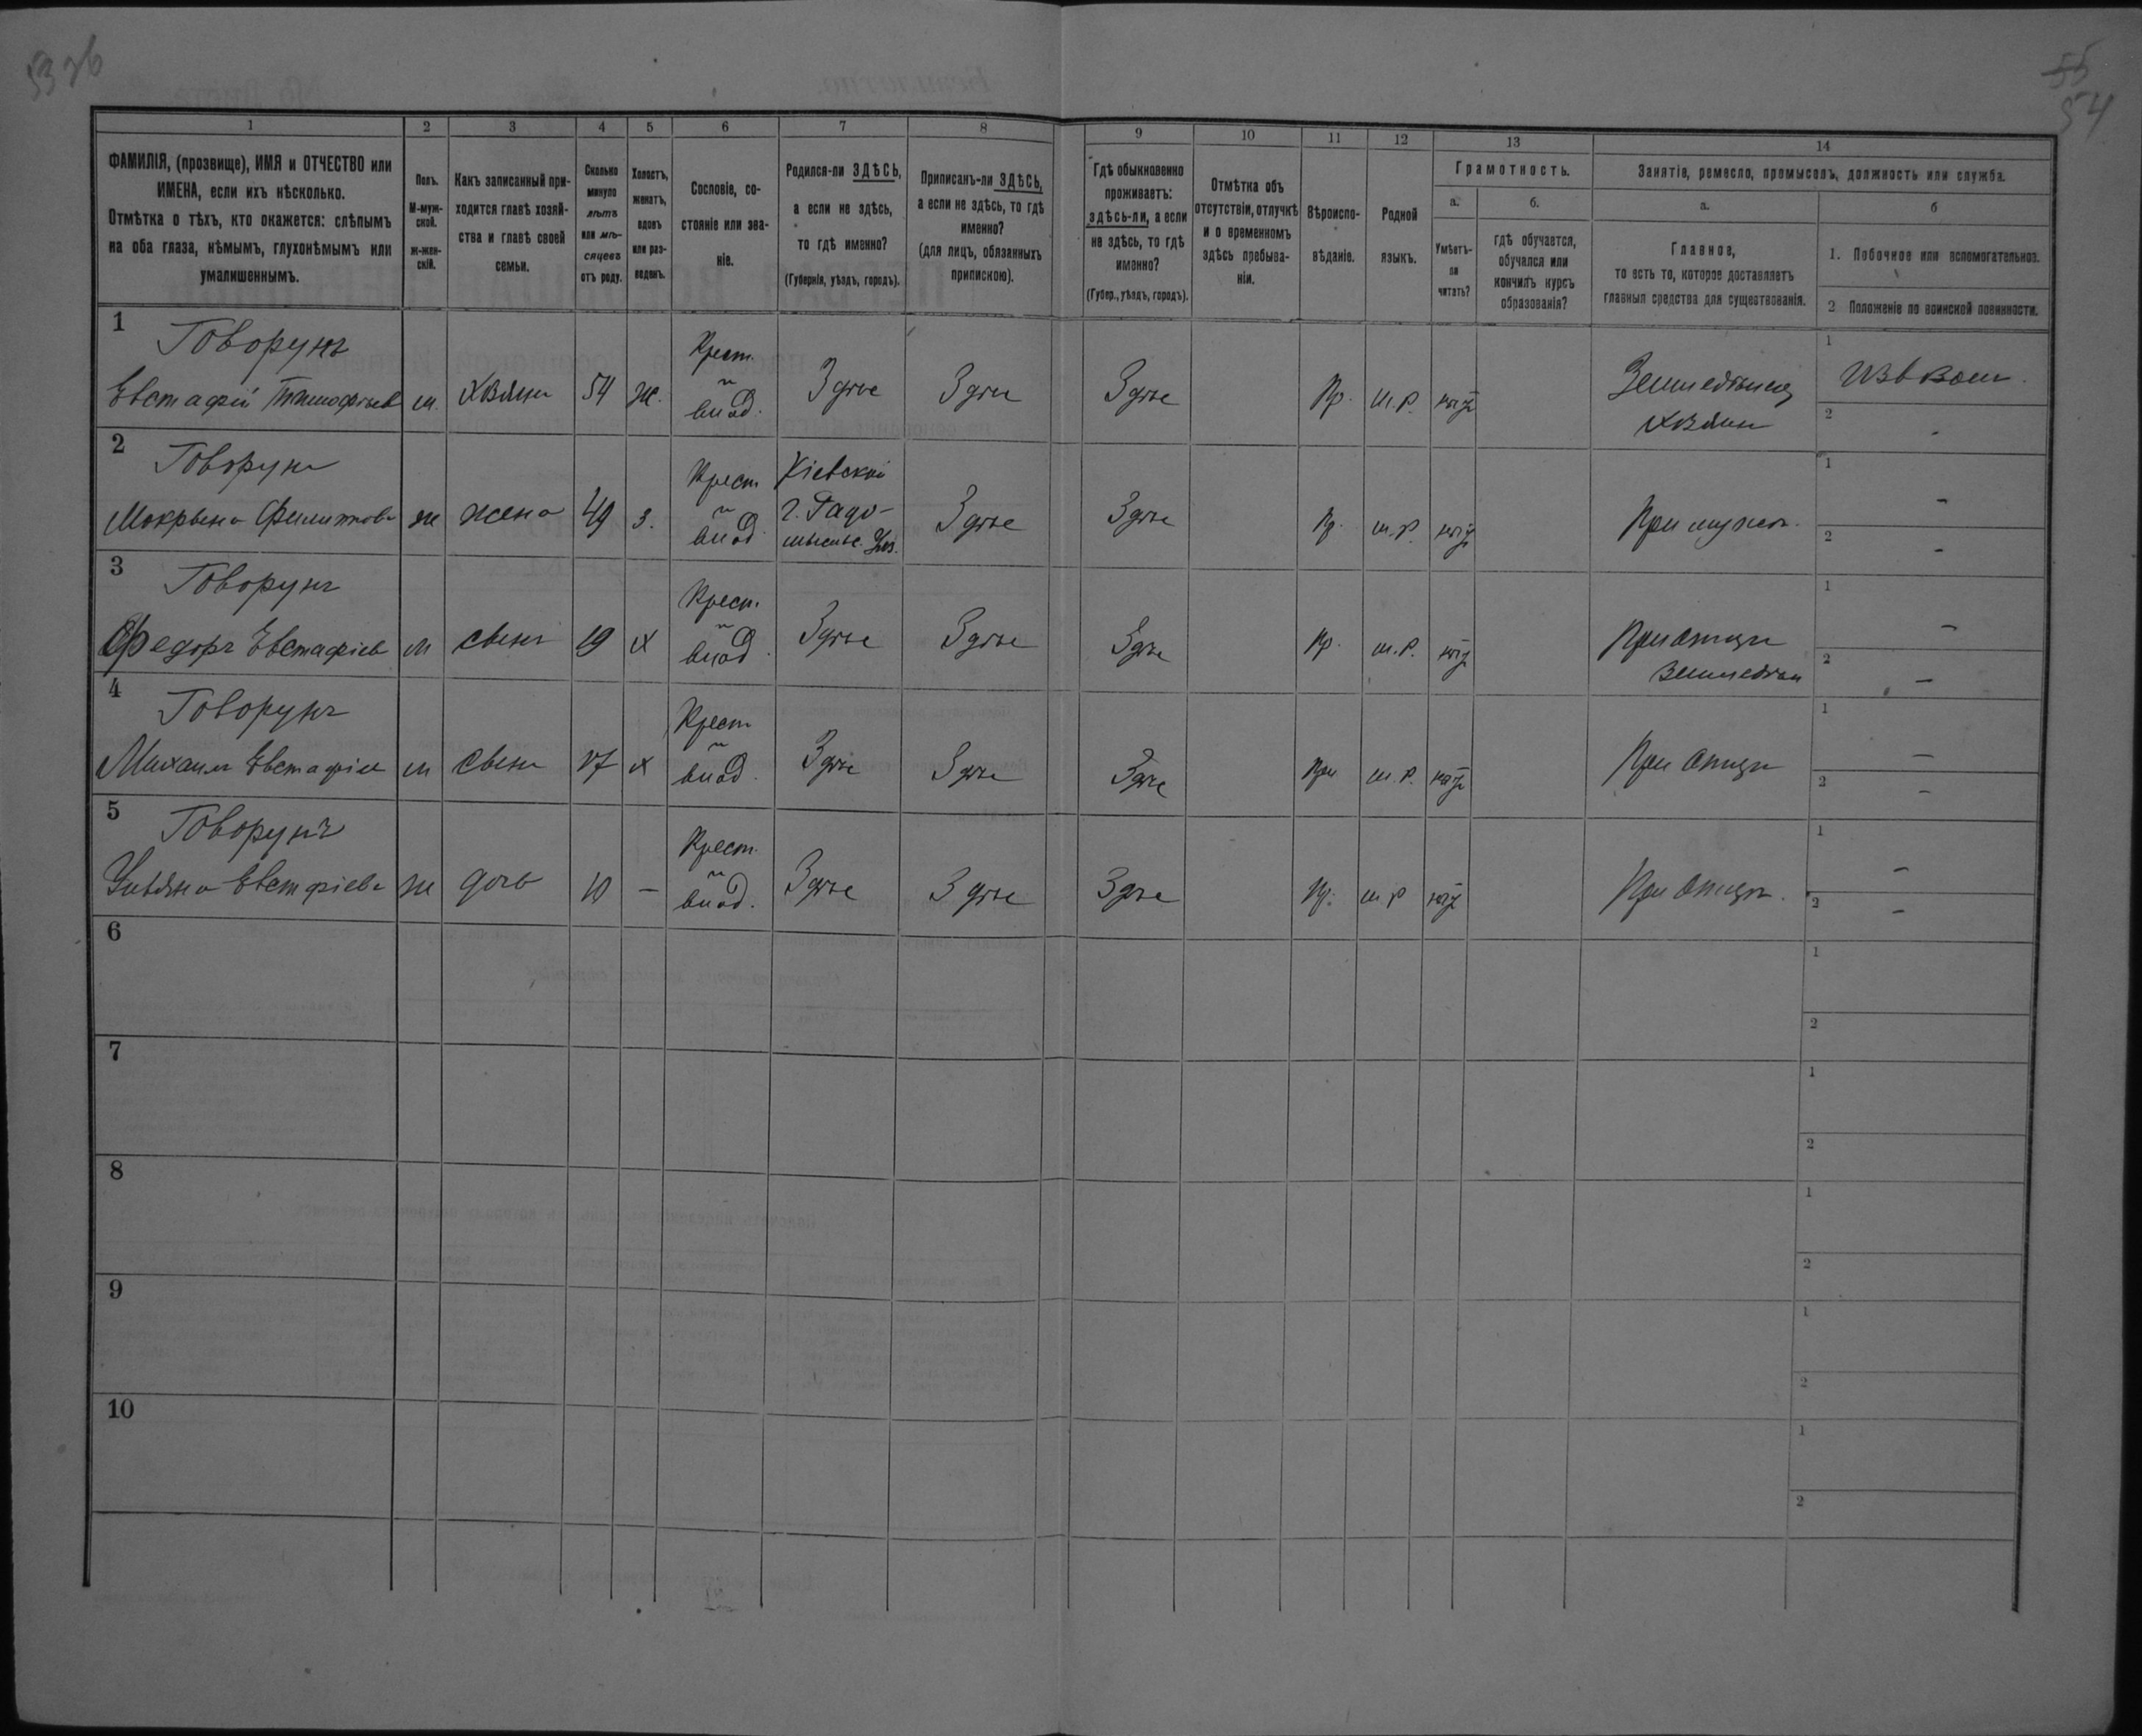 55
54
1 2 3 4 5 6 7 8 9 10 11 12 13 14
ФАМИЛІЯ, (прозвище), ИМЯ и ОТЧЕСТВО или
ИМЕНА, если ихъ нѣсколько.
Отмѣтка о тѣхъ, кто окажется: слѣпымъ
на оба глаза, нѣмымъ, глухонѣмымъ или
умалишеннымъ.
Полъ.
М-муж-
ской.
ж-жен-
скій.
Какъ записанный при-
ходится главѣ хозяй-
ства и главѣ своей
семьи.
Сколько
минуло
лѣтъ
или мѣ-
сяцевъ
отъ роду.
Холостъ,
женатъ,
вдовъ
или раз-
веденъ.
Сословіе, со-
стояніе или зва-
ніе.
Родился-ли ЗДѢСЬ,
а если не здѣсь,
то гдѣ именно?
(Губернія, уѣздъ, городъ).
Приписанъ-ли ЗДѢСЬ,
а если не здѣсь, то гдѣ
именно?
(для лицъ, обязанныхъ
припискою).
Гдѣ обыкновенно
проживаетъ:
здѣсь-ли, а если
не здѣсь, то гдѣ
именно?
(Губер., уѣздъ, городъ).
Отмѣтка объ
отсутствіи, отлучкѣ
и о временномъ
здѣсь пребыва-
ніи.
Вѣроиспо-
вѣданіе.
Родной
языкъ.
Грамотность.
а.
Умѣетъ-
ли
читать?
б.
гдѣ обучается,
обучался или
кончилъ курсъ
образованія?
Занятіе, ремесло, промыселъ, должность или служба.
а.
Главное,
то есть то, которое доставляетъ
главныя средства для существованія.
б
1. Побочное или вспомогательное.
2 Положеніе по воинской повинности.
1
Говорунъ
Евстафій Тимофѣев м. хозяин 54 ж.
Крест.
и
влад.
Здѣсе Здѣсе Здѣсе Пр. м.р. нѣтъ
Земледѣлец
хозяин
1
Извозом.
2
-
2
Говорун
Мокрына Филипова ж жена 49 з.
Крест
и
влад.
Кіевской
г. Радо-
мысльс. Уез.
Здѣсе Здѣсе Пр. м.р. нѣтъ При мужѣ.
1
-
2
-
3
Говорунъ
Федоръ Евстафіев м сынъ 19 х
Крест.
и
влад.
Здѣсе Здѣсе Здѣсе Пр. м.р. нѣтъ
При отцѣ
земледѣл
1
-
2
-
4
Говорунъ
Михаилъ Евстафіев м сынъ 17 х
Крест
и
влад.
Здѣсе Здѣсе Здѣсе Пр м.р. нѣтъ При отцѣ
1
-
2
-
5
Говорунъ
Ульяна Евстафіева ж дочь 10 -
Крест.
и
влад.
Здѣсе Здѣсе Здѣсе Пр. м р нѣтъ При отцѣ.
1
-
2
-
6
1
2
7
1
2
8
1
2
9
1
2
10
1
2